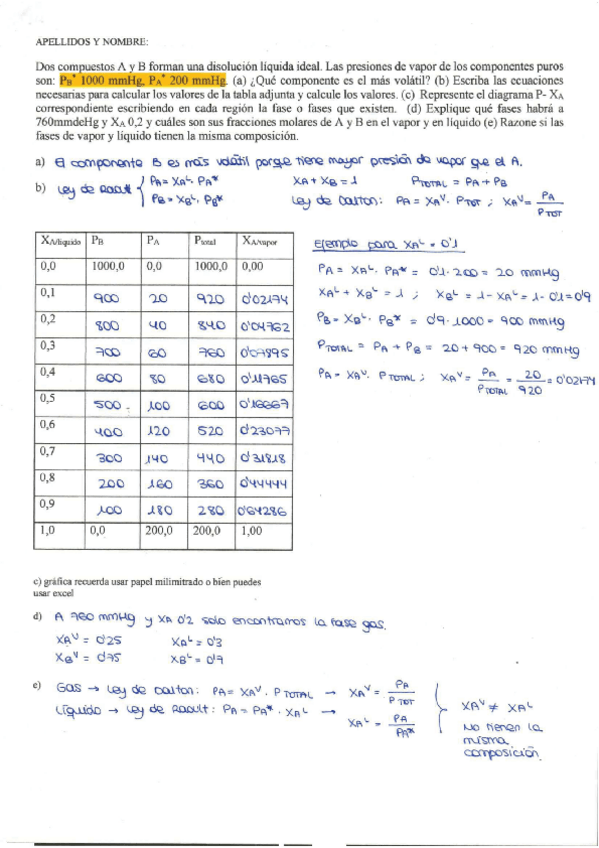 APELLIDOS Y NOMBRE:
Dos compuestos A y B forman una disolución líquida ideal. Las presiones de vapor de los componentes puros
son: PB* 1000 mmHg, PA* 200 mmHg. (a) ¿Qué componente es el más volátil? (b) Escriba las ecuaciones
necesarias para calcular los valores de la tabla adjunta y calcule los valores. (c) Represente el diagrama P- XA
correspondiente escribiendo en cada región la fase o fases que existen. (d) Explique qué fases habrá a
760mmdeHg y XA 0,2 y cuáles son sus fracciones molares de A y B en el vapor y en líquido (e) Razone si las
fases de vapor y líquido tienen la misma composición.
a) El componente B es más volátil porque tiene mayor presión de vapor que el A.
b) Ley de Raoult { PA = XA^L · PA* XA + XB = 1 PTOTAL = PA + PB
PB = XB^L · PB* Ley de Dalton: PA = XA^V · PTOT ; XA^V = PA / PTOT
XA/líquido PB PA Ptotal XA/vapor
0,0 1000,0 0,0 1000,0 0,00
0,1 900 20 920 0'02174
0,2 800 40 840 0'04762
0,3 700 60 760 0'07895
0,4 600 80 680 0'11765
0,5 500 100 600 0'16667
0,6 400 120 520 0'23077
0,7 300 140 440 0'31818
0,8 200 160 360 0'44444
0,9 100 180 280 0'64286
1,0 0,0 200,0 200,0 1,00
Ejemplo para XA^L = 0'1
PA = XA^L · PA* = 0'1 · 200 = 20 mmHg
XA^L + XB^L = 1 ; XB^L = 1 - XA^L = 1 - 0'1 = 0'9
PB = XB^L · PB* = 0'9 · 1000 = 900 mmHg
PTOTAL = PA + PB = 20 + 900 = 920 mmHg
PA = XA^V · PTOTAL ; XA^V = PA / PTOTAL = 20 / 920 = 0'02174
c) gráfica recuerda usar papel milimitrado o bien puedes
usar excel
d) A 760 mmHg y XA 0'2 solo encontramos la fase gas.
XA^V = 0'25 XA^L = 0'3
XB^V = 0'75 XB^L = 0'7
e) Gas → Ley de Dalton: PA = XA^V · PTOTAL → XA^V = PA / PTOT
Líquido → Ley de Raoult: PA = PA* · XA^L → XA^L = PA / PA*
XA^V ≠ XA^L
No tienen la
misma
composición.